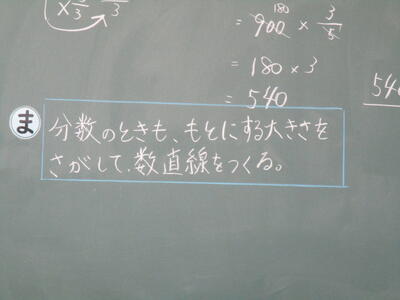 ×2/3
3
= 900 180 × 3/5
= 180 × 3
= 540
540
ま
分数のときも、もとにする大きさを
さがして、数直線をつくる。